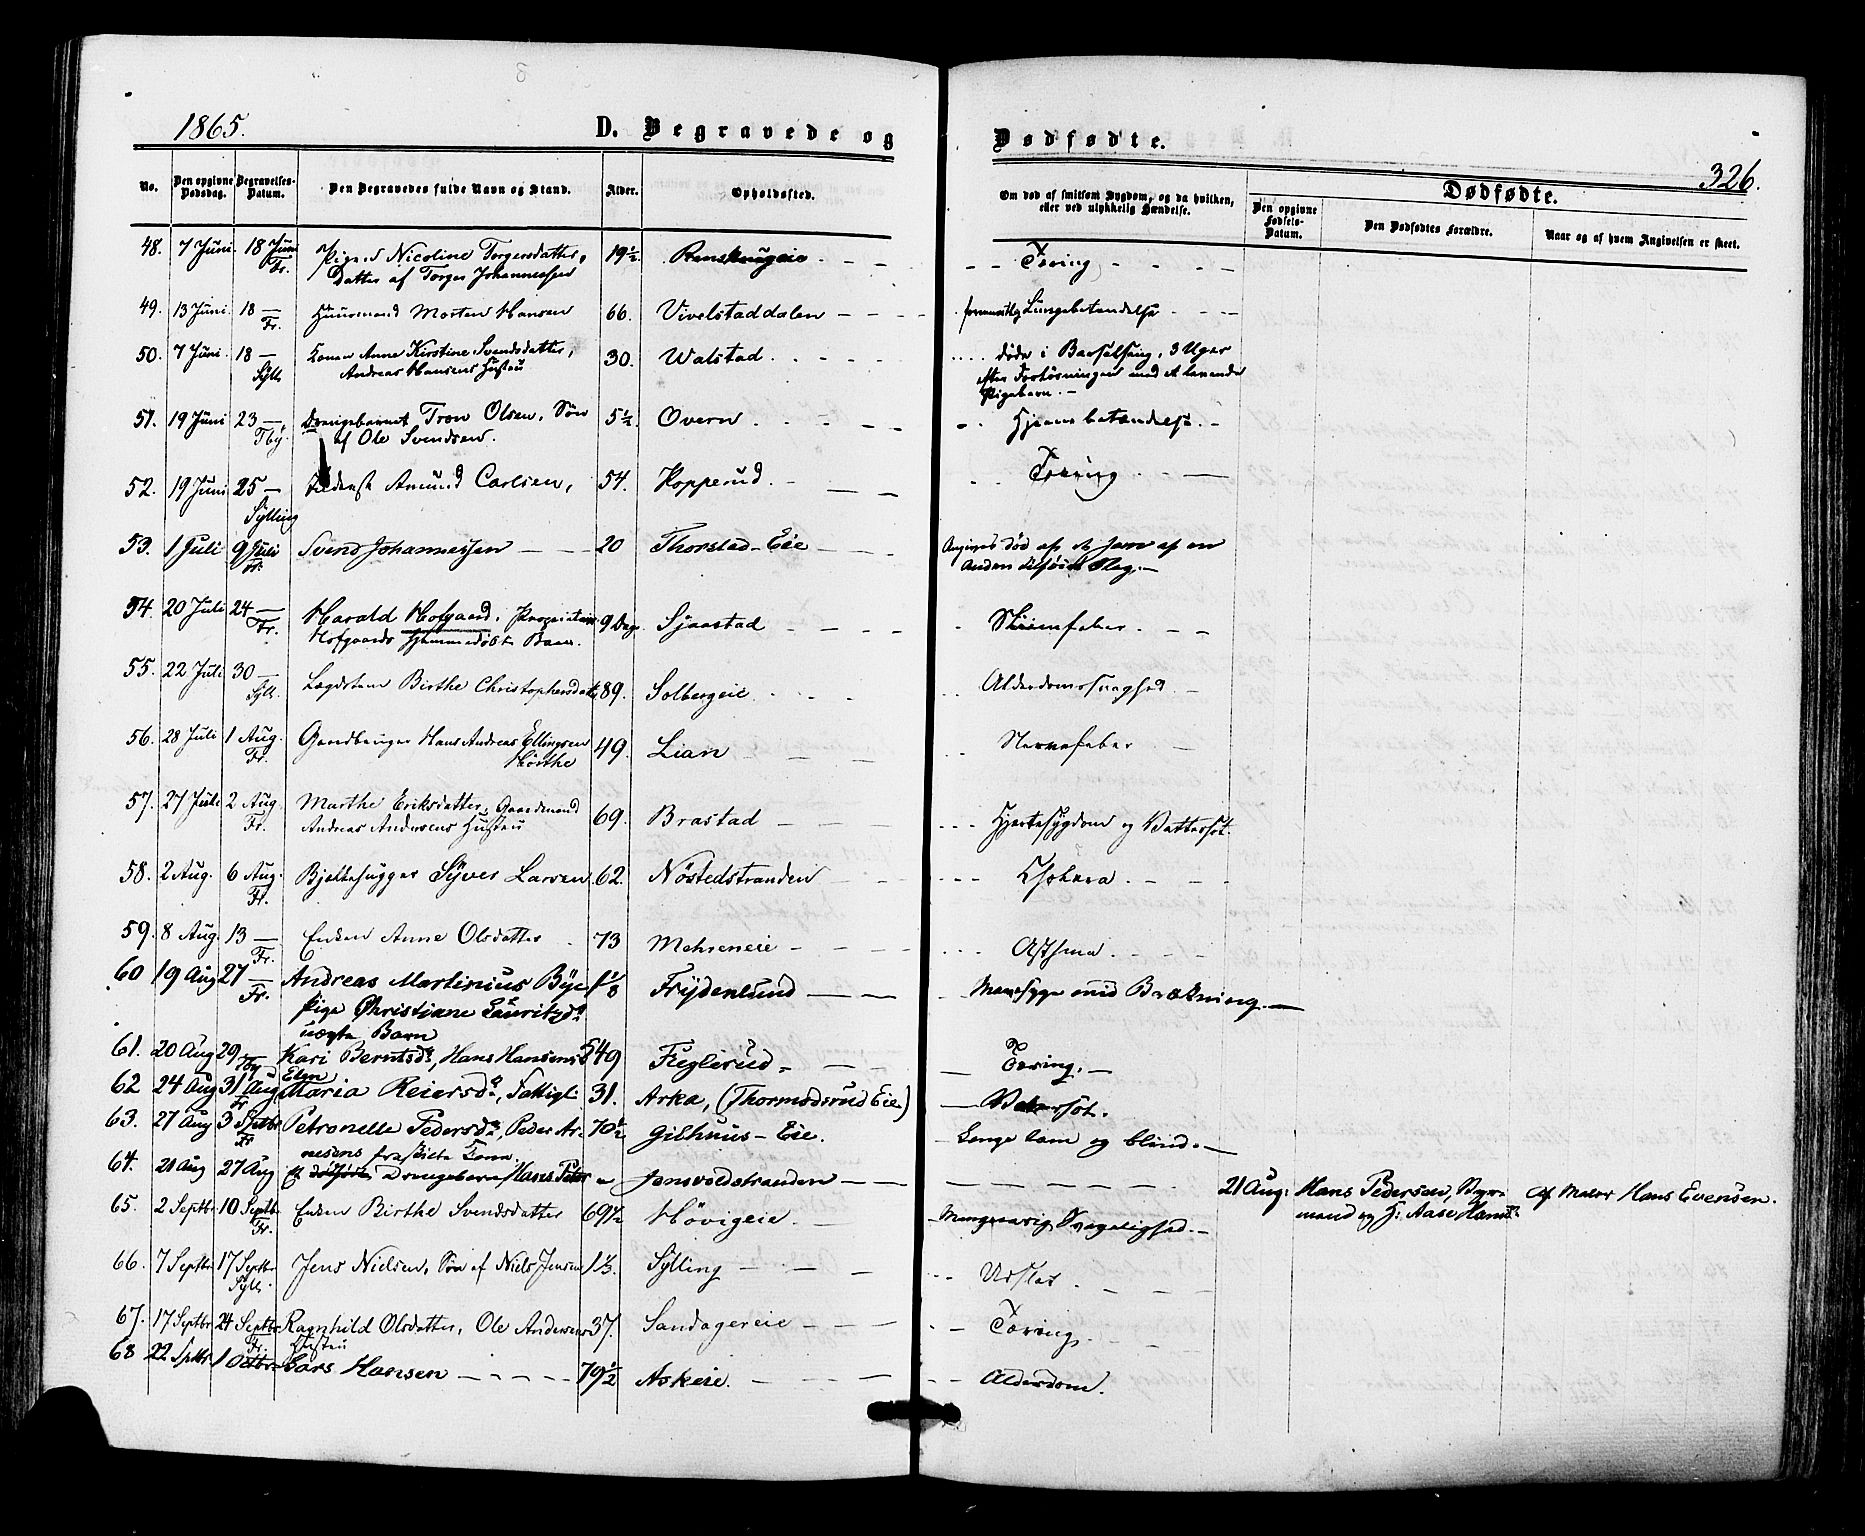 1865.
D. Begravede og Dødfødte.
326.
No.
Den opgivne Dødsdag.
Begravelses-Datum.
Den Begravedes fulde Navn og Stand.
Alder.
Opholdssted.
Om død af smitsom Sygdom, og da hvilken, eller ved ulykkelig Hændelse.
Dødfødte.
Den opgivne Fødsels-Datum.
Den Dødfødtes Forældre.
Naar og af hvem Angivelsen er skeet.
48. 7 Juni. 18 Juni Fr. Pigen Nicoline Torgersdatter, 19 1/2 - - Tæring - - -
Datter af Torger Johannessen
49. 13 Juni. 18 — Fr. Huusmand Morten Hansen 66. Vivelstaddalen - - - Lungebetændelse - - -
50. 7 Juni. 18 — Syll. Konen Anne Kirstine Svendsdatter, 30. Walstad - - døde i Barselseng, 3 Uger
Andreas Hansens Hustru efter Forløsningen med et levende
Pigebarn. -
51. 19 Juni 23 — Tby. Drengebarnet Tron Olsen, Søn 5 1/2 Overn - - Hjernebetændelse. -
af Ole Svendsen.
52. 19 Juni 25 — Sylling Amund Carlsen, 54. Hopperud - - Tæring - -
53. 1 Juli 9 Juli Fr. Svend Johannessen - - 20 Thorstad-Eie - - Angives død af et ham af en
Anden tilføiet Slag. -
54. 20 Juli 24 — Fr. Harald Hofgaard, Proprietair 9 Dage Sjaastad - - -
Hofgaards hjemmedøbte Barn.
55. 22 Juli 30 — Syll. Lægdslem Birthe Christophersdatter 89. Solbergeie - - Alderdomssvaghed -
56. 28 Juli 1 Aug. Fr. Hans Andreas Ellingsen 49. Lian - - Nervefeber -
Hörthe
57. 27 Juli 2 Aug. Fr. Marthe Eriksdatter, Gaardmand 69. Brastad - - - Hjertesygdom og Vattersot.
Andreas Andersens Hustru
58. 2 Aug. 6 Aug. Fr. Bjelkehugger Syver Larsen 62. Nöstedstranden - - - Cholera. - - -
59. 8 Aug. 13 — Fr. Enken Anne Olsdatter 73 Mehreneie - - - Asthma. - - -
60 19 Aug 27 — Fr. Andreas Martinius 1 1/8 Frydenlund - - Mavesyge med Brækning. -
Pige Christiane Lauritzd:
uægte Barn
61. 20 Aug 29 — Tby Kari Berntsd:, Hans Hansens 49 Fuglerud - - Tæring. -
62 24 Aug 31 Aug Fr. Maria Reiersd:, Fattigl: 31. Arka, (Thormodsrud Eie) - Vatersot.
63. 27 Aug 3 Septbr Fr. Petronelle Pedersd:, Peder Ar- 70 1/2 Gilhuus-Eie. - Længe lam og blind. -
nesens fraskilte Kone.
64. 21 Aug 27 Aug Et dødfødt Drengebarn Hans Peter - Jensvoldstranden - - 21 Aug: Hans Pedersen, Af Maler Hans Evensen.
mand og H: Aase Hansd:
65. 2 Septbr 10 Septbr Fr. Enken Birthe Svendsdatter 69 1/2 Hövigeie. - Mangeaarig Svagelighed. -
66. 7 Septbr 17 Septbr Syll. Jens Nielsen, Søn af Niels Jensen 1 1/3. Sylling - - - Udslet. - - -
67. 17 Septbr 24 Septbr Fr. Ragnhild Olsdatter, Ole Andersens 37. Sandagereie - - - Tæring. - -
Hustru
68 22 Septbr 1 Octbr Lars Hansen - - - 79 1/2 Askeie. - - - Alderdom.